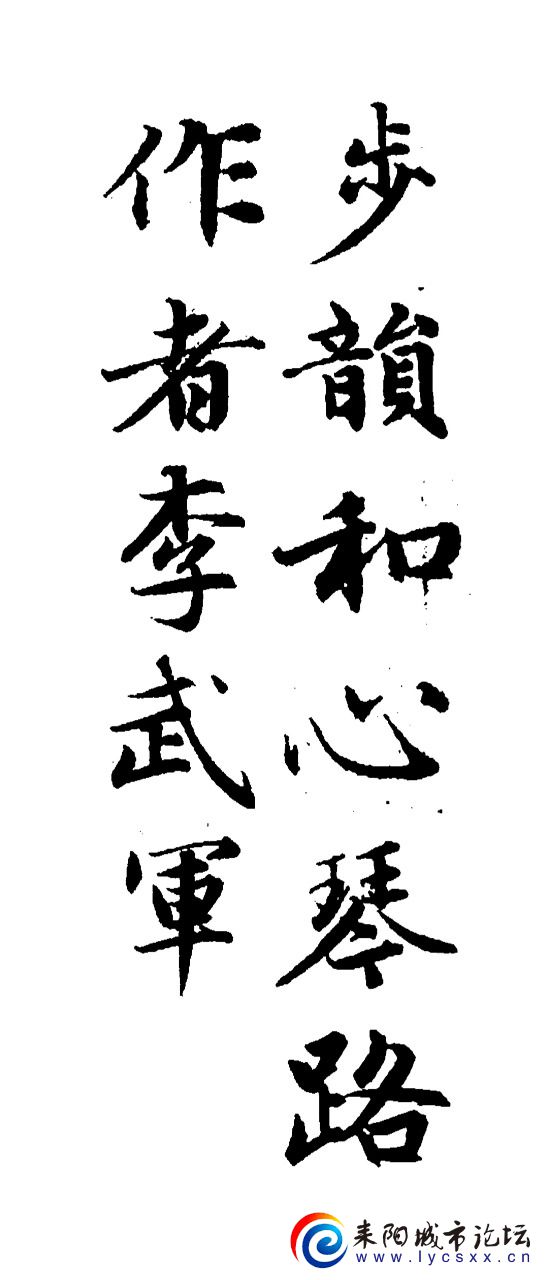 步韻和心琴路
作者李武軍
耒阳城市论坛
www.lycsxx.cn